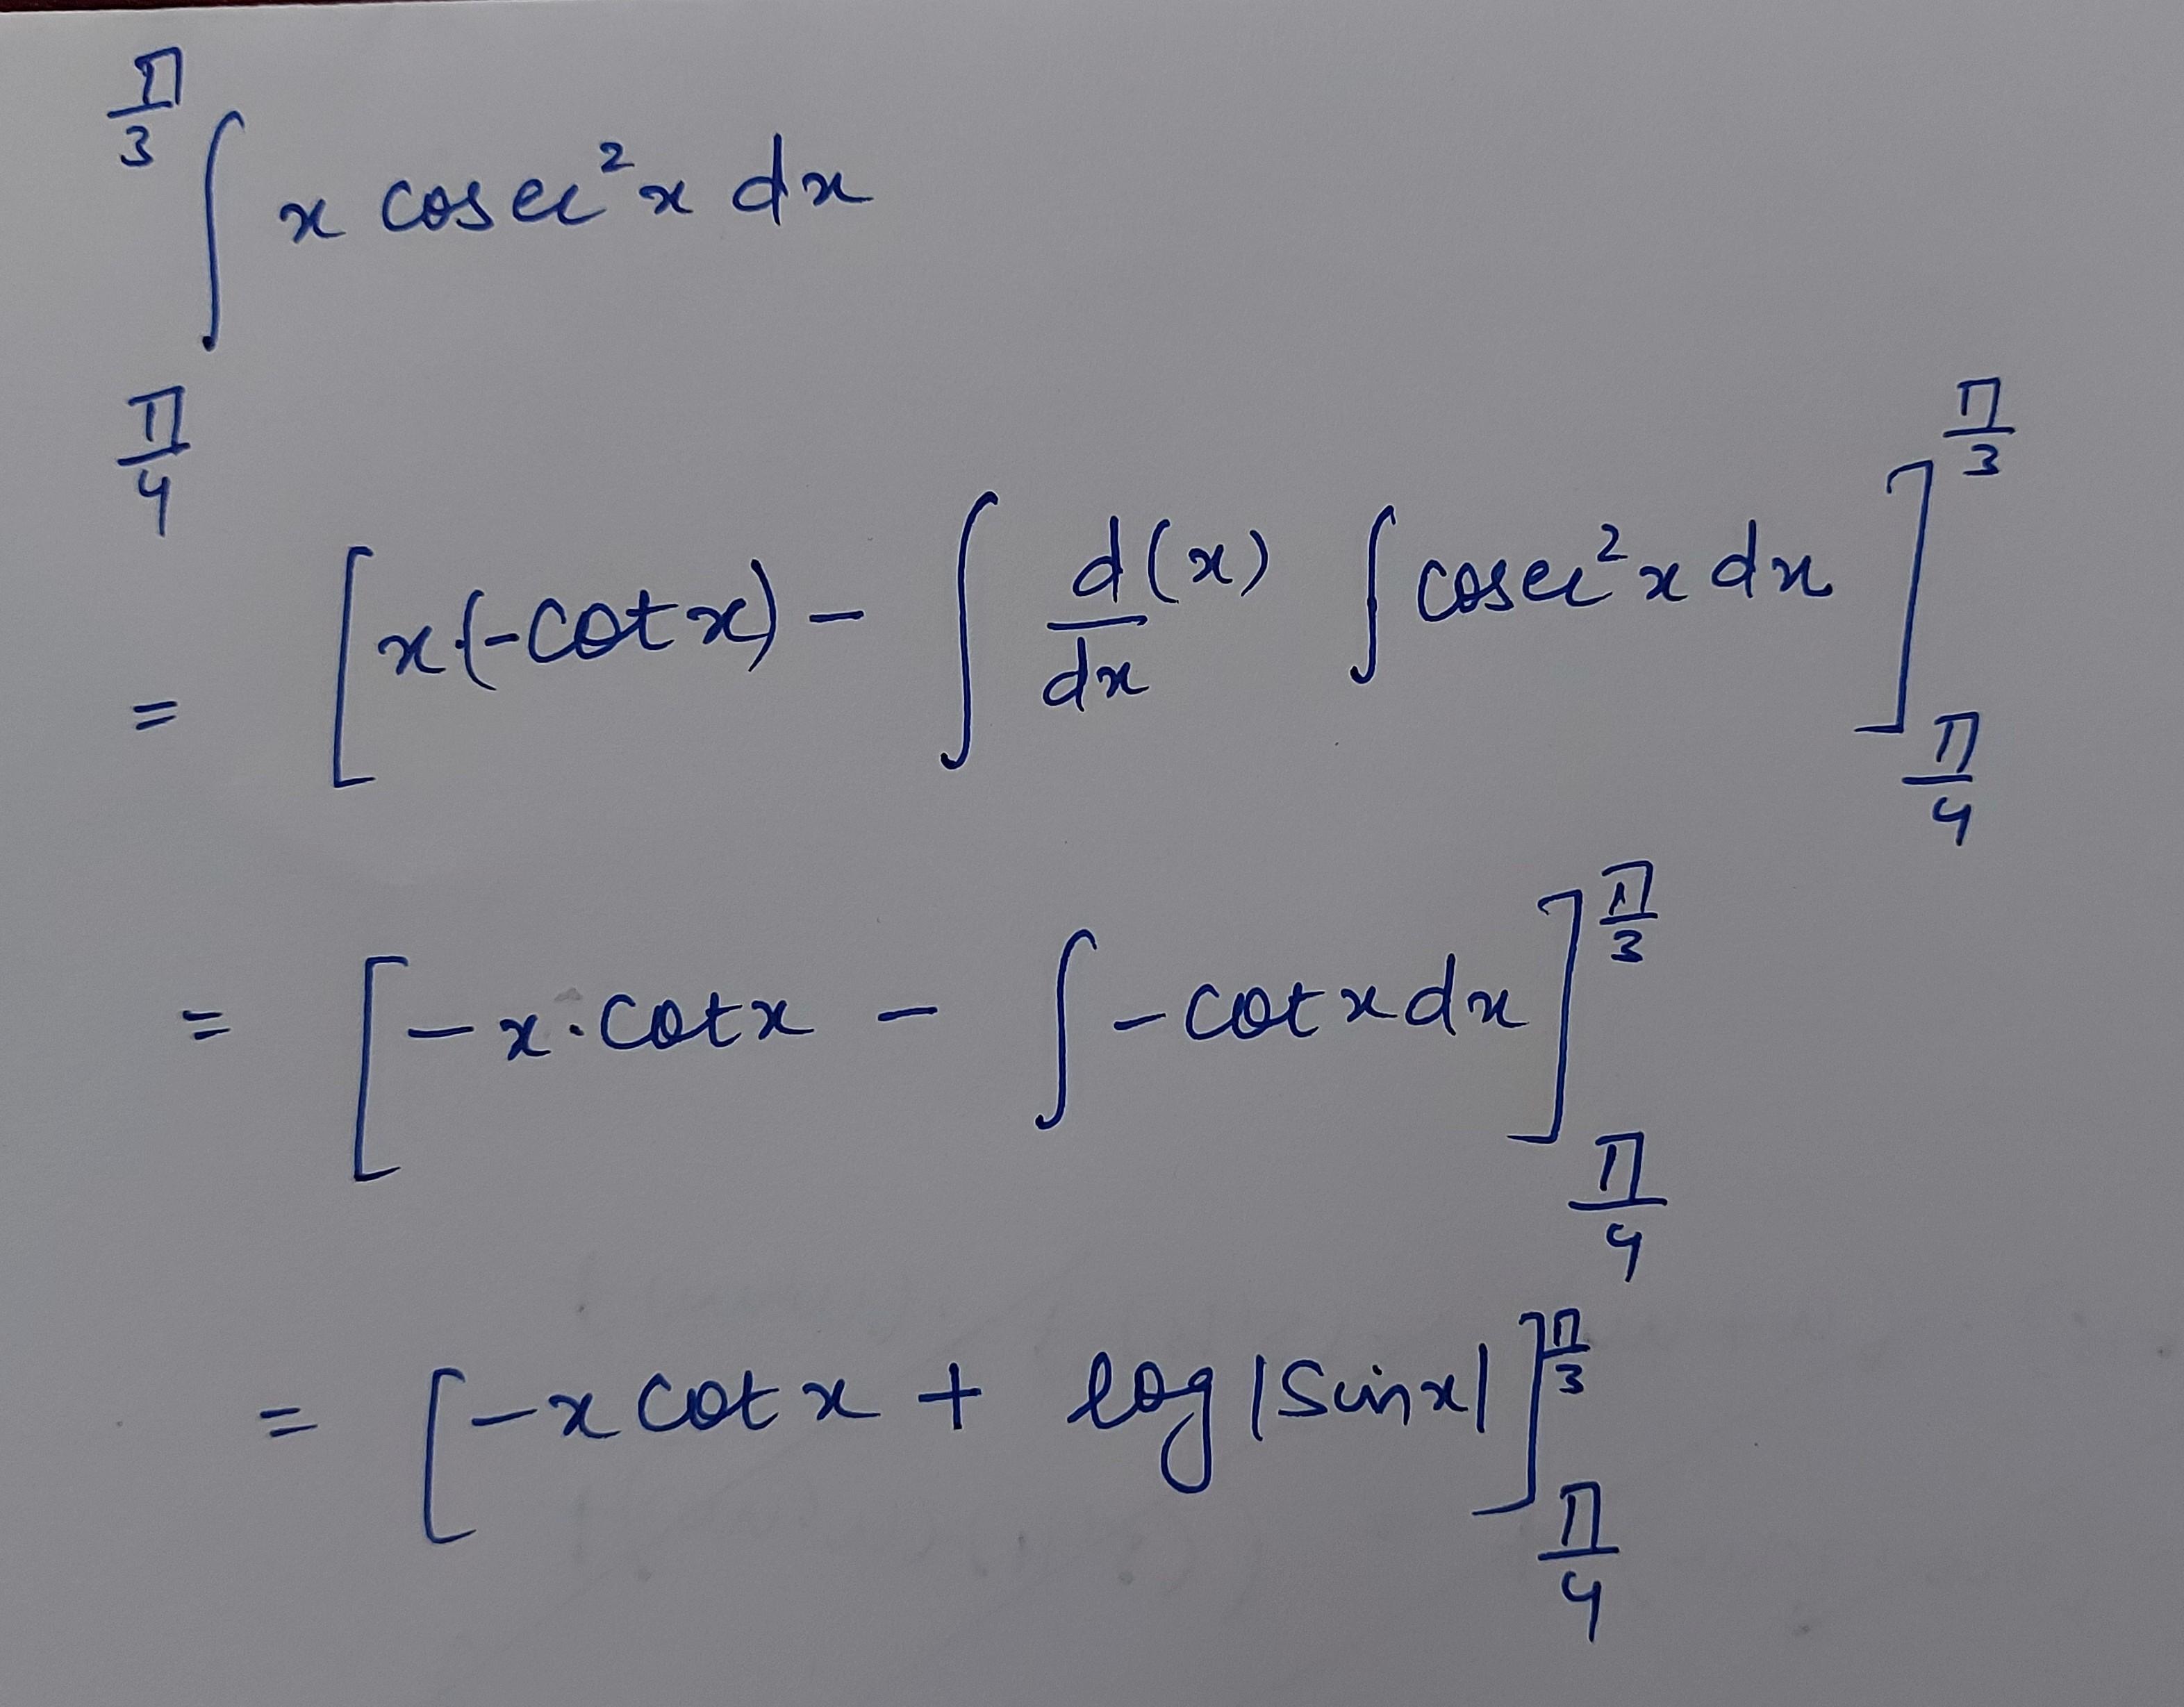 ∫_{π/4}^{π/3} x cosec²x dx
= [x·(-cotx) - ∫ d(x)/dx ∫ cosec²x dx]_{π/4}^{π/3}
= [-x·cotx - ∫ -cotx dx]_{π/4}^{π/3}
= [-x cotx + log|Sinx|]_{π/4}^{π/3}